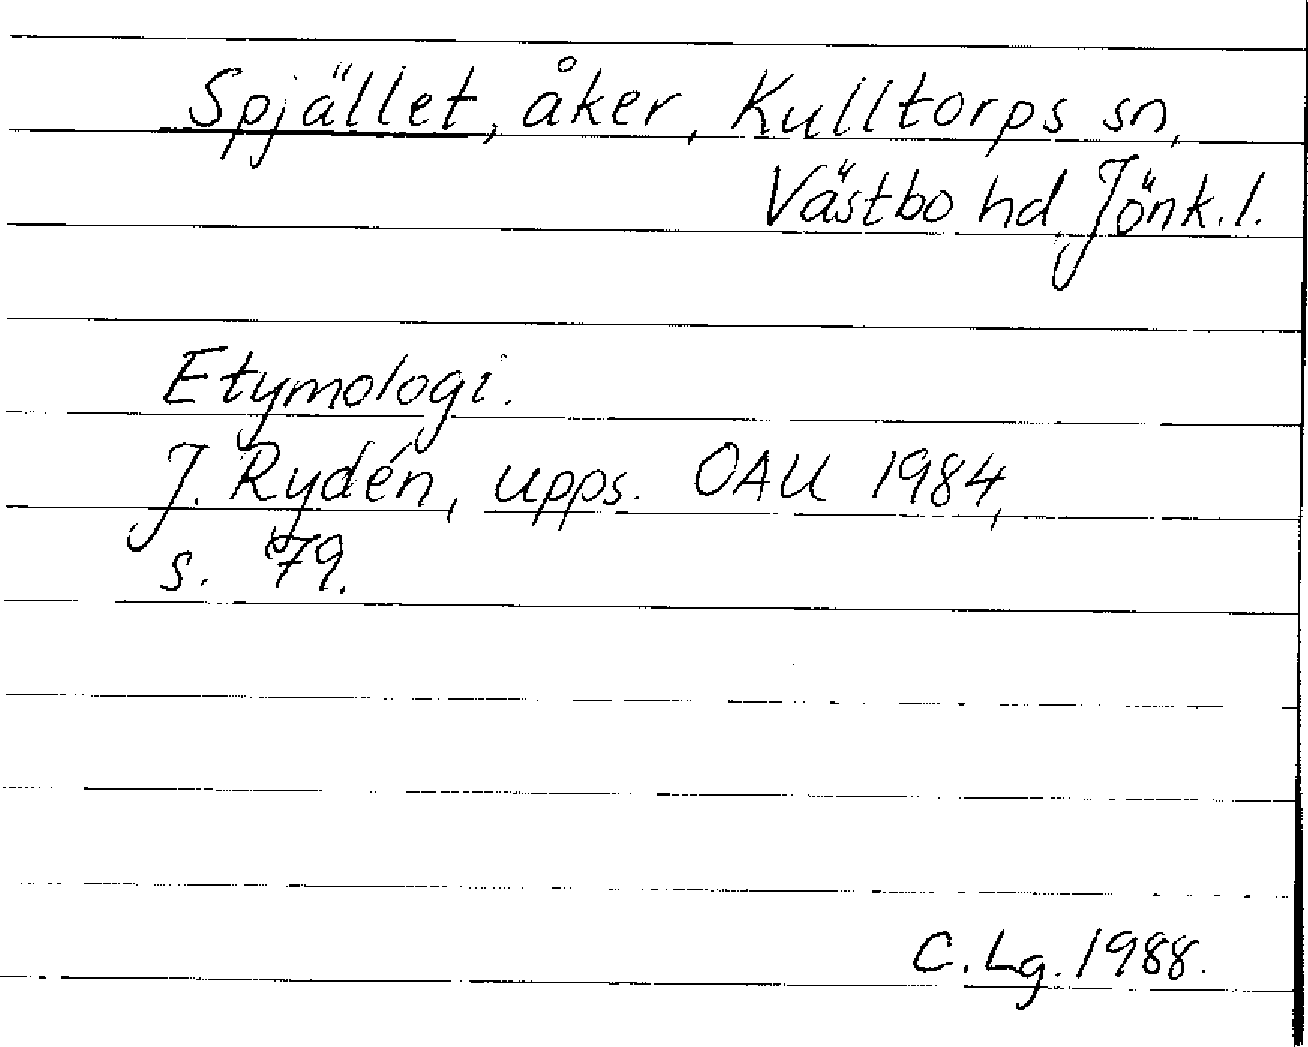 Spjället, åker, Kulltorps sn,
Västbo hd, Jönk.l.
Etymologi.
J. Rydén, upps. OAU 1984,
s. 79.
C.Lg. 1988.